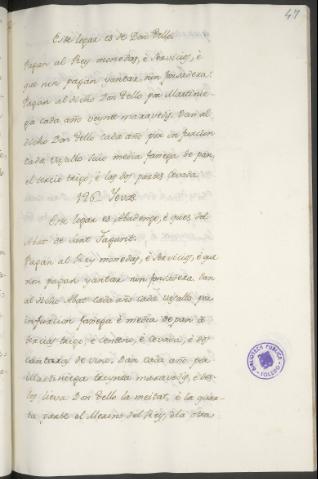 47
Este logar es de Don Tello.
Pagan al Rey monedas, è servicios, è
que non pagan yantar nin fonsadera.
Pagan al dicho Don Tello por Martinie-
ga cada año veynte maravedis. Dan al
dicho Don Tello cada año por infurcion
cada vasallo suio media fanega de pan,
el tercio trigo, è las dos partes cevada.
Este logar es Abadengo, è que es del
Abat de Sant Fagunt.
Pagan al Rey monedas, è servicios, è que
non pagan yantar nin fonsadera. Dan
al dicho Abat cada año cada vasallo por
infurcion fanega è media de pan à
tercias trigo, è centeno, è cevada, è dos
cantaras de vino. Dan cada año por
Martiniega treynta maravedis, è des-
tos lieva Don Tello la meitat, è la quar-
ta parte el Merino del Rey, è la otra
BIBLIOTECA PUBLICA
TOLEDO